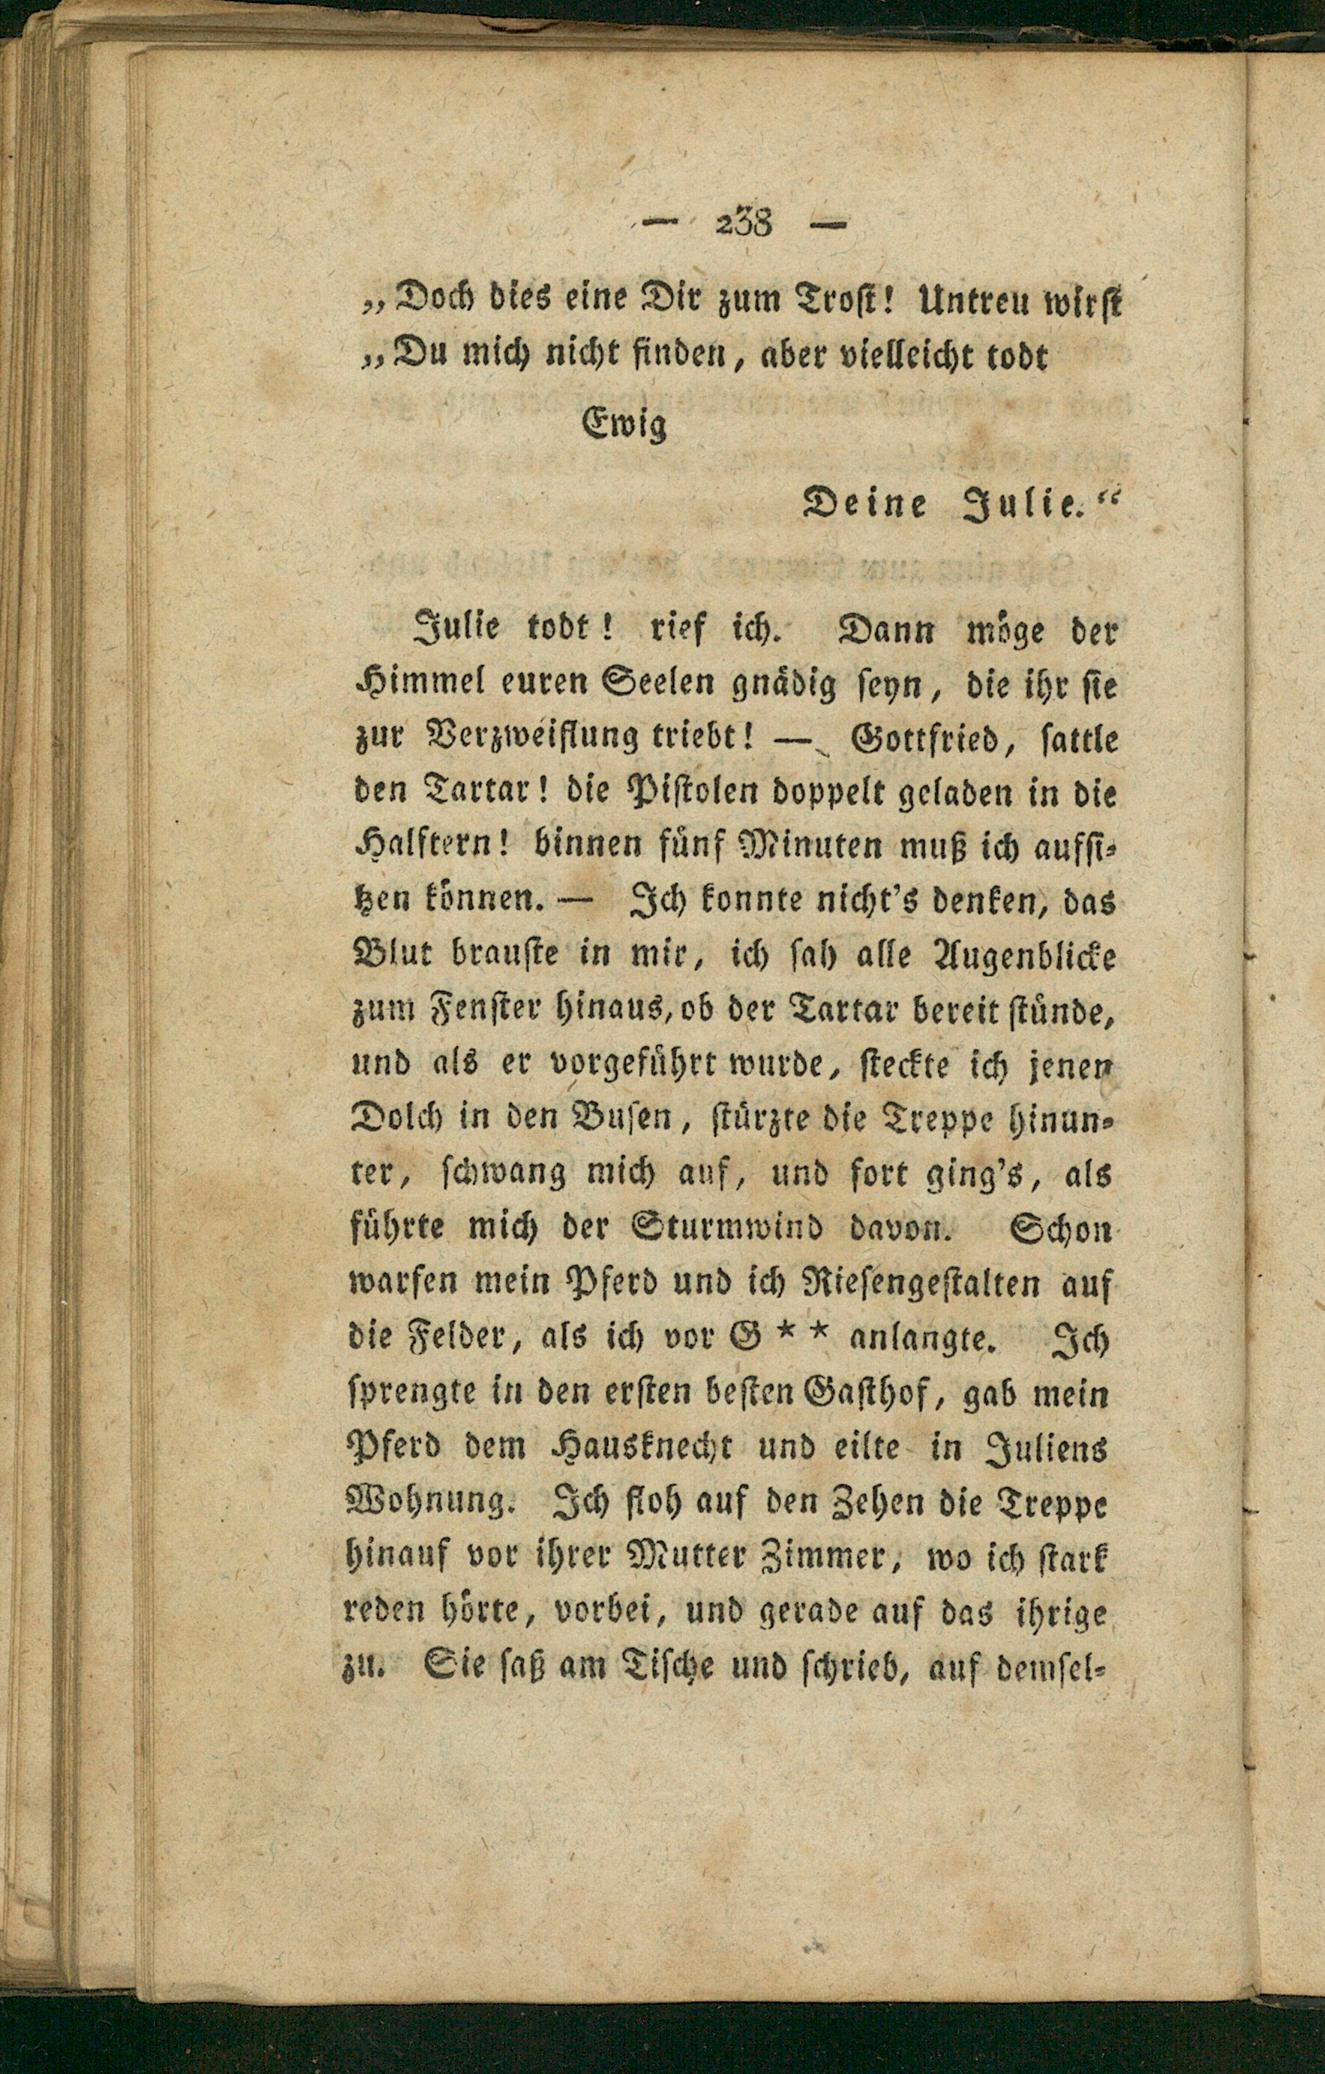 — 238 —
„Doch dies eine Dir zum Trost! Untreu wirst
„Du mich nicht finden, aber vielleicht todt
Ewig
Deine Julie.“
Julie todt! rief ich. Dann möge der
Himmel euren Seelen gnädig seyn, die ihr sie
zur Verzweiflung triebt! — Gottfried, sattle
den Tartar! die Pistolen doppelt geladen in die
Halftern! binnen fünf Minuten muß ich aufsi-
tzen können. — Ich konnte nicht's denken, das
Blut brauste in mir, ich sah alle Augenblicke
zum Fenster hinaus, ob der Tartar bereit stünde,
und als er vorgeführt wurde, steckte ich jenen
Dolch in den Busen, stürzte die Treppe hinun-
ter, schwang mich auf, und fort ging's, als
führte mich der Sturmwind davon. Schon
warfen mein Pferd und ich Riesengestalten auf
die Felder, als ich vor G * * anlangte. Ich
sprengte in den ersten besten Gasthof, gab mein
Pferd dem Hausknecht und eilte in Juliens
Wohnung. Ich floh auf den Zehen die Treppe
hinauf vor ihrer Mutter Zimmer, wo ich stark
reden hörte, vorbei, und gerade auf das ihrige
zu. Sie saß am Tische und schrieb, auf demsel-